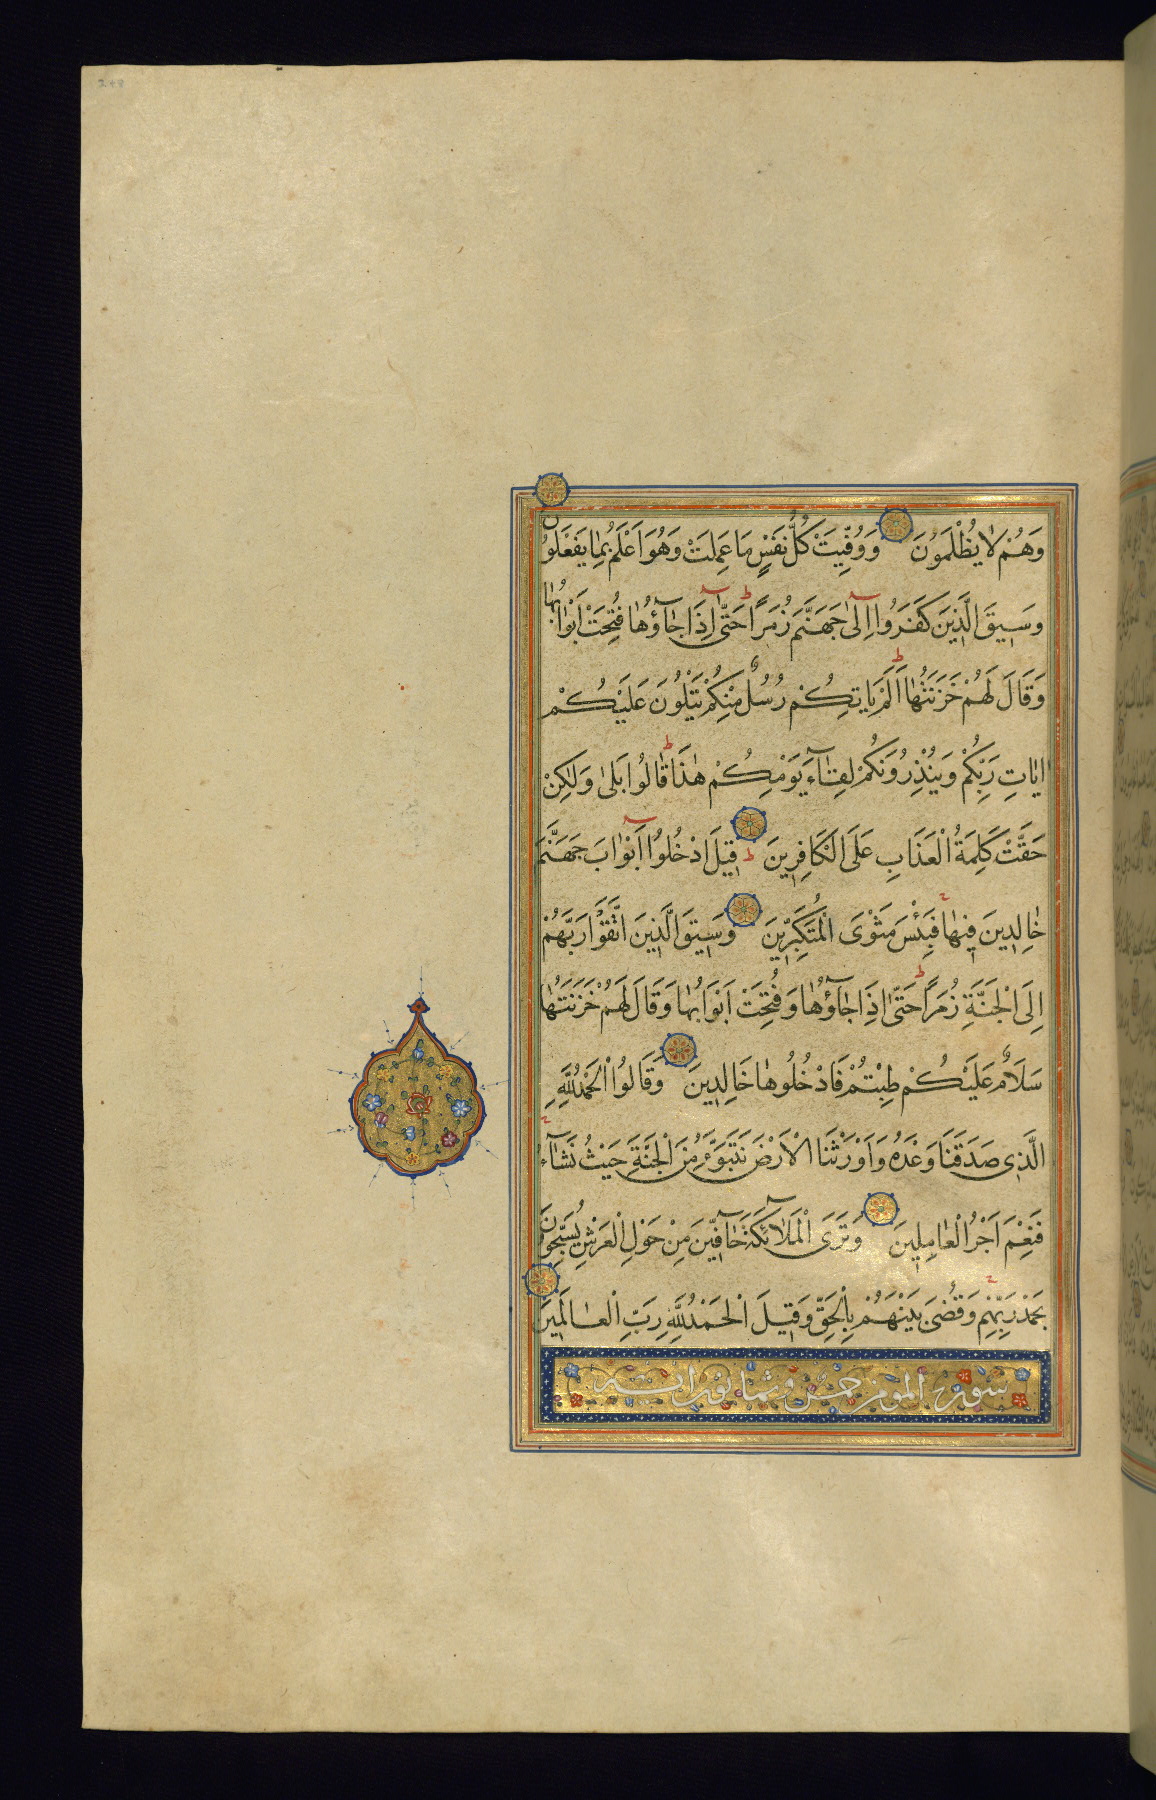 وَهُمْ لَا يُظْلَمُونَ وَوُفِّيَتْ كُلُّ نَفْسٍ مَا عَمِلَتْ وَهُوَ اَعْلَمُ بِمَا يَفْعَلُونَ
وَسِيقَ الَّذِينَ كَفَرُوا اِلٰى جَهَنَّمَ زُمَرًا حَتّٰى اِذَا جَاؤُهَا فُتِحَتْ اَبْوَابُهَا
وَقَالَ لَهُمْ خَزَنَتُهَا اَلَمْ يَاتِكُمْ رُسُلٌ مِنْكُمْ يَتْلُونَ عَلَيْكُمْ
ايَاتِ رَبِّكُمْ وَيُنْذِرُونَكُمْ لِقَاءَ يَوْمِكُمْ هٰذَا قَالُوا بَلٰى وَلٰكِنْ
حَقَّتْ كَلِمَةُ الْعَذَابِ عَلَى الْكَافِرِينَ قِيلَ ادْخُلُوا اَبْوَابَ جَهَنَّمَ
خَالِدِينَ فِيهَا فَبِئْسَ مَثْوَى الْمُتَكَبِّرِينَ وَسِيقَ الَّذِينَ اتَّقَوْا رَبَّهُمْ
اِلَى الْجَنَّةِ زُمَرًا حَتّٰى اِذَا جَاؤُهَا وَفُتِحَتْ اَبْوَابُهَا وَقَالَ لَهُمْ خَزَنَتُهَا
سَلَامٌ عَلَيْكُمْ طِبْتُمْ فَادْخُلُوهَا خَالِدِينَ وَقَالُوا الْحَمْدُ لِلّٰهِ
الَّذِى صَدَقَنَا وَعْدَهُ وَاَوْرَثَنَا الْاَرْضَ نَتَبَوَّءُ مِنَ الْجَنَّةِ حَيْثُ نَشَاءُ
فَنِعْمَ اَجْرُ الْعَامِلِينَ وَتَرَى الْمَلَائِكَةَ حَافِّينَ مِنْ حَوْلِ الْعَرْشِ يُسَبِّحُونَ
بِحَمْدِ رَبِّهِمْ وَقُضِىَ بَيْنَهُمْ بِالْحَقِّ وَقِيلَ الْحَمْدُ لِلّٰهِ رَبِّ الْعَالَمِينَ
سورة المومن خمس وثمانون اية